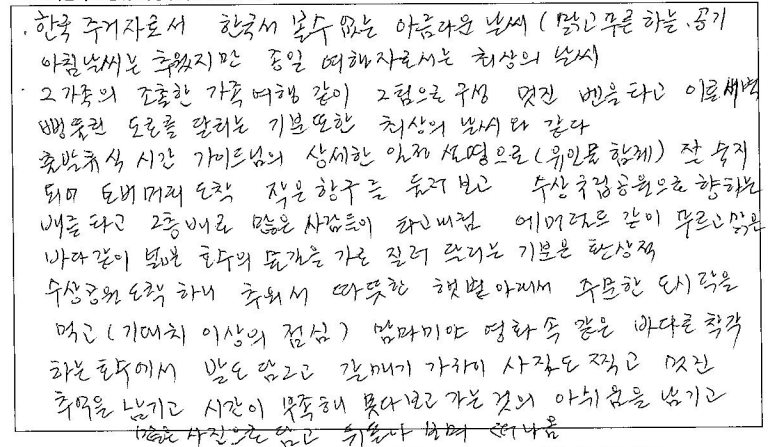 · 한국 주거자로서 한국서 볼수 없는 아름다운 날씨 (맑고 푸른 하늘, 공기
아침 날씨는 추웠지만 종일 여행자로서는 최상의 날씨
· 2가족의 조촐한 가족여행 같이 2팀으로 구성 멋진 벤을 타고 이른새벽
뻥 뚫린 도로를 달리는 기분또한 최상의 날씨와 같다
출발휴식 시간 가이드님의 상세한 일정 설명으로 (유인물 함께) 잘 숙지
되어 도착 작은 항구를 둘러보고 수상국립공원으로 향하는
배를 타고 2층배로 많은 사람들이 타고 에머럴드 같이 푸르고 맑은
바다같이 호수의 물길을 가로 질러 달리는 기분은 환상적
수상공원 도착하니 추워서 따뜻한 햇볕아래서 주문한 도시락을
먹고 (기대치 이상의 점심) 맘마미아 영화속 같은 바다로 착각
하는 호수에서 발도 담그고 갈매기 가까이 사진도 찍고 멋진
추억을 남기고 시간이 부족해 못다보고 가는 것의 아쉬움을 남기고
많은 사진으로 담고 뒤돌아 보며 떠나옴